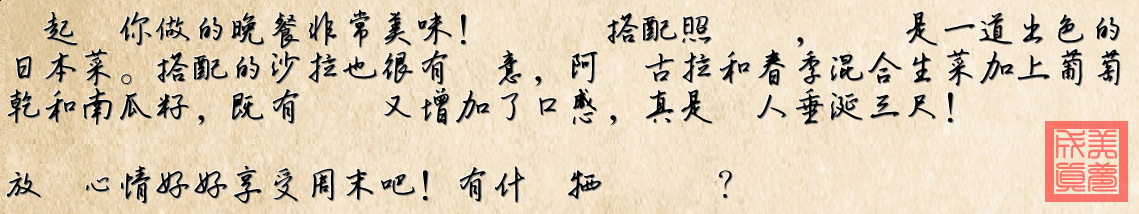 起 你做的晚餐非常美味! 搭配照 , 是一道出色的
日本菜。搭配的沙拉也很有 意,阿 古拉和春季混合生菜加上葡萄
乾和南瓜籽,既有 又增加了口感,真是 人垂涎三尺!
放 心情好好享受周末吧! 有什 牺 ?
美夢成真